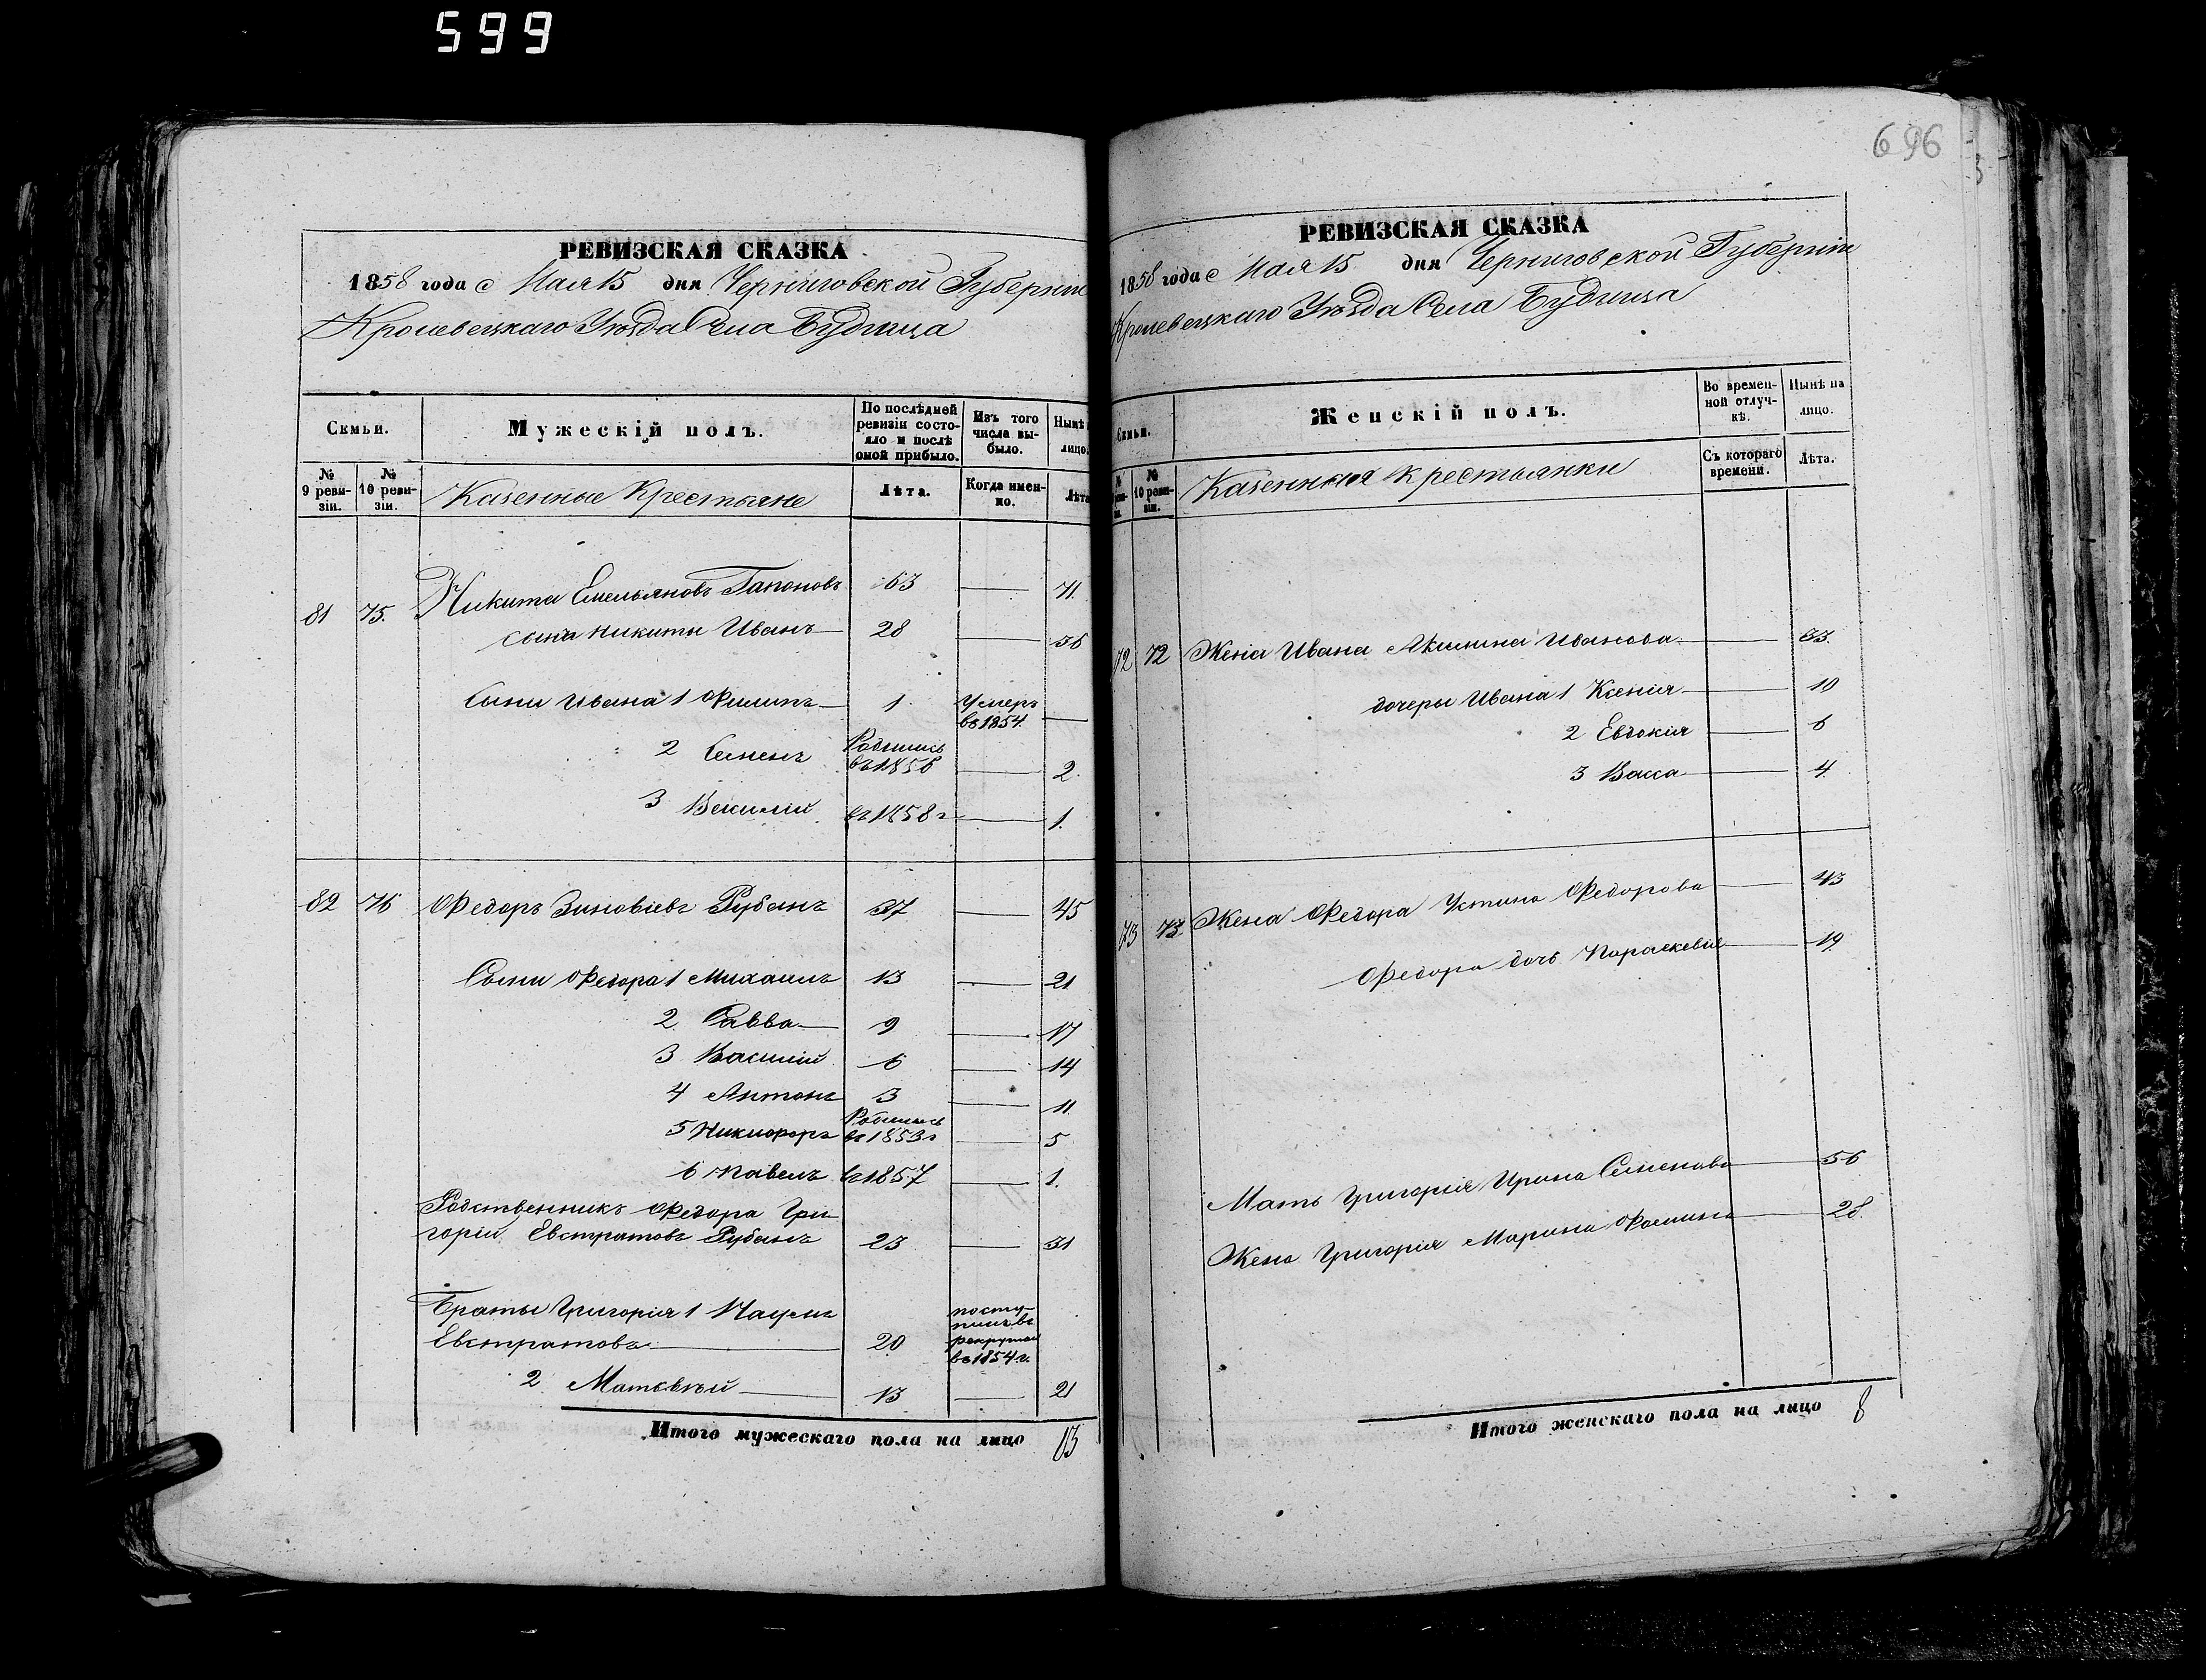 599
696
РЕВИЗСКАЯ СКАЗКА
1858 года Мая 15 дня Черниговской Губерніи
Кролевецкаго Уѣзда Села Будища
Семьи.
Мужескій полъ.
По послѣдней ревизіи состояло и послѣ оной прибыло.
Изъ того числа выбыло.
Нынѣ
лицо.
№ 9 ревизіи.
№ 10 ревизіи.
Казенные Крестьяне
Лѣта.
Когда именно.
Лѣта
81 75. Никита Емельяновъ Гапоновъ 63 — 71.
сынъ Никиты Иванъ 28 — 36
Сыны Ивана 1 Филипъ 1 Умеръ въ 1854 —
2 Семенъ Родились въ 1856 — 2.
3 Василій въ 1858 г — 1.
82 76 Федоръ Зиновіевъ Рубанъ 37 — 45
Сыны Федора 1 Михаилъ 13 — 21
2 Савва 9 — 17
3 Василій 6 — 14
4 Антонъ 3 — 11
5 Никифоръ Родились въ 1853 г — 5
6 Павелъ въ 1857 — 1.
Родственникъ Федора Гри
горій Евстратовъ Рубанъ 23 — 31
Браты Григорія 1 Наумъ
Евстратовъ 20 поступилъ въ рекруты въ 1854 г.
2 Матвѣй 13 — 21
Итого мужескаго пола на лицо 13
РЕВИЗСКАЯ СКАЗКА
1858 года Мая 15 дня Черниговской Губерніи
Кролевецкаго Уѣзда Села Будища
Семьи.
Женскій полъ.
Во временной отлучкѣ.
Нынѣ на лицо.
№ 10 ревизіи.
Казенныя крестьянки
Съ котораго времени.
Лѣта.
72 72 Жена Ивана Акилина Иванова — 33.
дочеры Ивана 1 Ксенія — 10
2 Евдокія — 6
3 Васса — 4
73 73 Жена Федора Устина Федорова — 43
Федора дочь Параскевія — 19
Мать Григорія Ирина Семенова — 56
Жена Григорія Марина Фомина — 28.
Итого женскаго пола на лицо 8